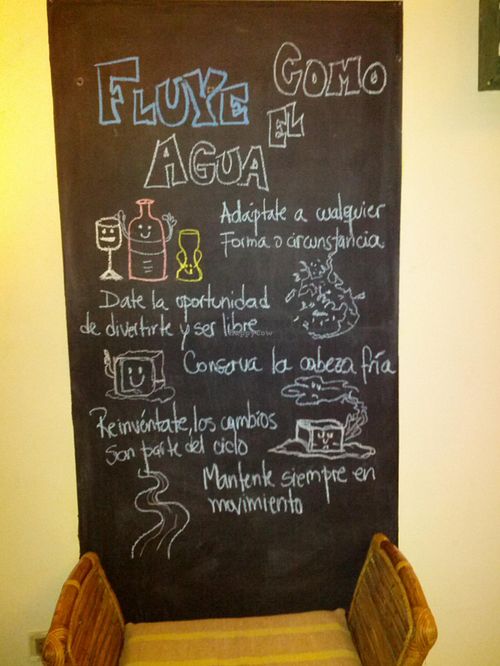 FLUYE COMO
EL
AGUA
Adáptate a cualquier
Forma o circunstancia
Date la oportunidad
de divertirte y ser libre
Conserva la cabeza fría
Reinvéntate, los cambios
son parte del ciclo
Mantente siempre en
movimiento